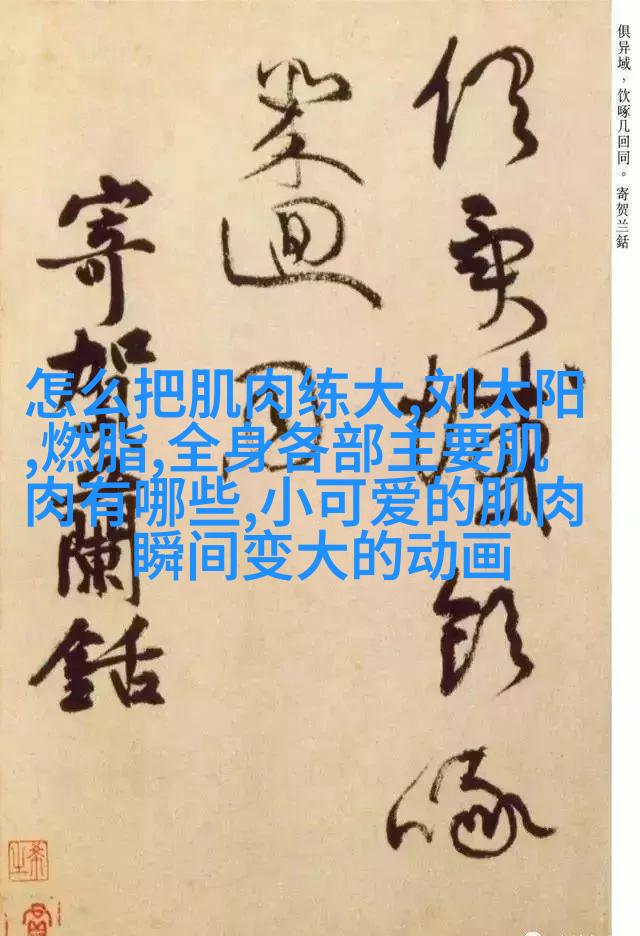 俱异域，饮啄几回同。寄贺兰銛
俱異域飲啄
幾迴同
寄賀蘭銛
怎么把肌肉练大,刘太阳
,燃脂,全身各部主要肌
肉有哪些,小可爱的肌肉
瞬间变大的动画